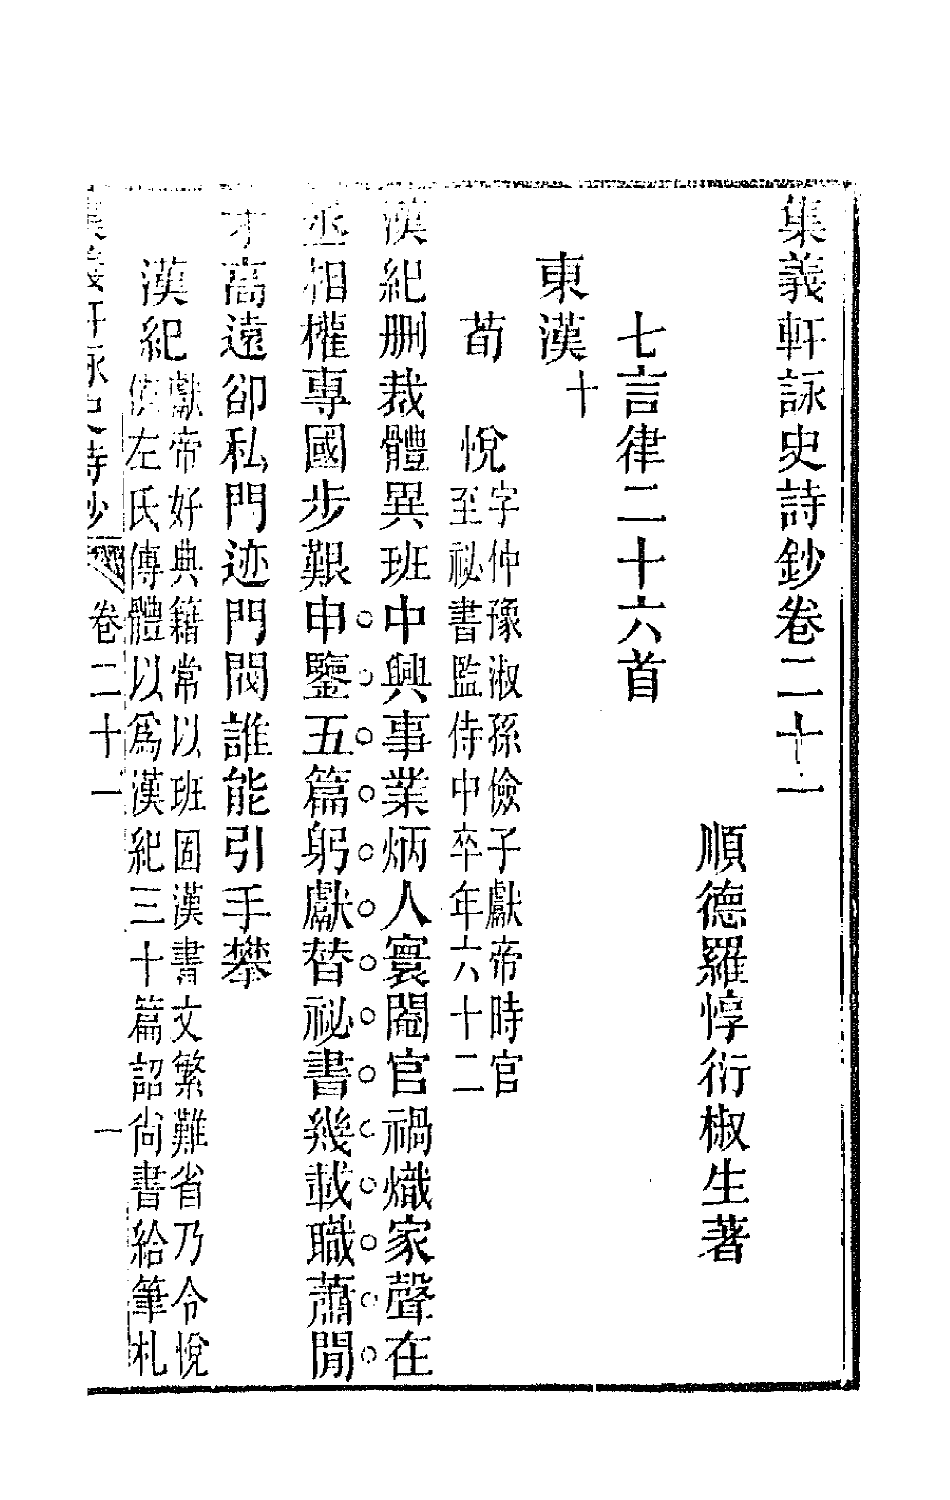 集義軒詠史詩鈔卷二十一
順德羅惇衍椒生著
七言律二十六首
東漢十
荀　悅字仲豫淑孫儉子獻帝時官
至祕書監侍中卒年六十二
漢紀删裁體異班中興事業炳人寰閹官禍熾家聲在
丞相權專國步艱申鑒五篇躬獻替祕書幾載職蕭閒
才高遠卻私門迹門閥誰能引手攀
漢紀獻帝好典籍常以班固漢書文繁難省乃令悅
依左氏傳體以為漢紀三十篇詔尚書給筆札
集義軒詠史詩鈔　卷二十一　一